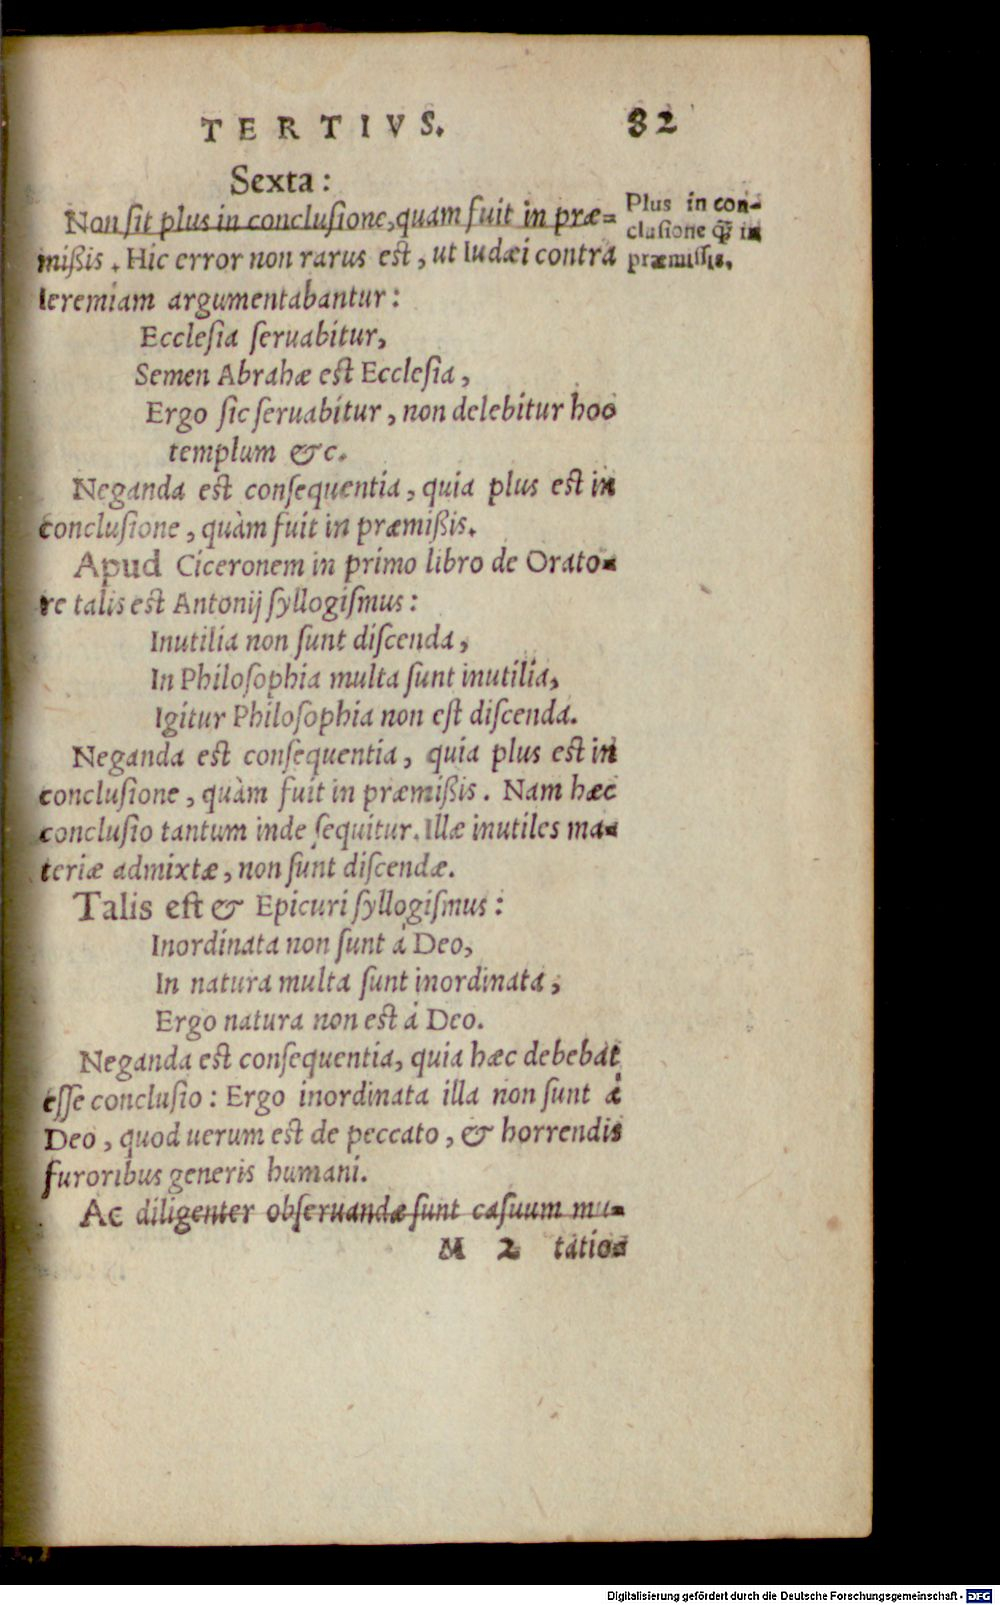 TERTIVS. 82
Sexta:
Non sit plus in conclusione, quam fuit in præ=
mißis. Hic error non rarus est, ut Iudæi contra
Ieremiam argumentabantur:
Plus in con-
clusione q̃ in
præmissis.
Ecclesia seruabitur,
Semen Abrahæ est Ecclesia,
Ergo sic seruabitur, non delebitur hoc
templum &c.
Neganda est consequentia, quia plus est in
conclusione, quàm fuit in præmißis.
Apud Ciceronem in primo libro de Orato=
re talis est Antonij syllogismus:
Inutilia non sunt discenda,
In Philosophia multa sunt inutilia,
Igitur Philosophia non est discenda.
Neganda est consequentia, quia plus est in
conclusione, quàm fuit in præmißis. Nam hæc
conclusio tantum inde sequitur. Illæ inutiles ma=
teriæ admixtæ, non sunt discendæ.
Talis est & Epicuri syllogismus:
Inordinata non sunt à Deo,
In natura multa sunt inordinata,
Ergo natura non est à Deo.
Neganda est consequentia, quia hæc debebat
esse conclusio: Ergo inordinata illa non sunt à
Deo, quod uerum est de peccato, & horrendis
furoribus generis humani.
Ac diligenter obseruandæ sunt casuum mu=
M 2 tatio=
Digitalisierung gefördert durch die Deutsche Forschungsgemeinschaft - DFG